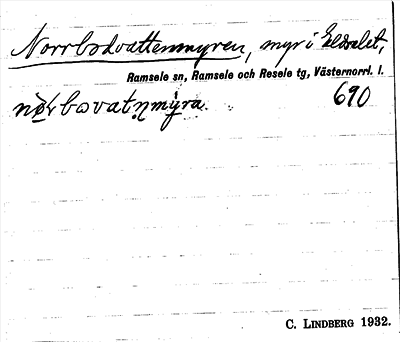 Norrbodvattenmyren, myr i Eldvalet,
Ramsele sn, Ramsele och Resele tg, Västernorrl. l.
nǫrbovatn̥myra. 690
C. LINDBERG 1932.